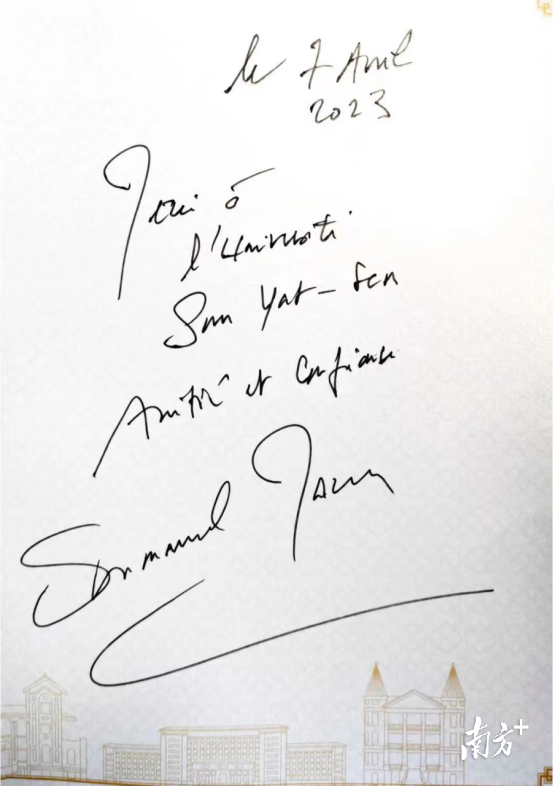 le 7 Avril
2023
Merci à
l'Université
Sun Yat-Sen
Amitié et Confiance
Emmanuel Macron
南方+